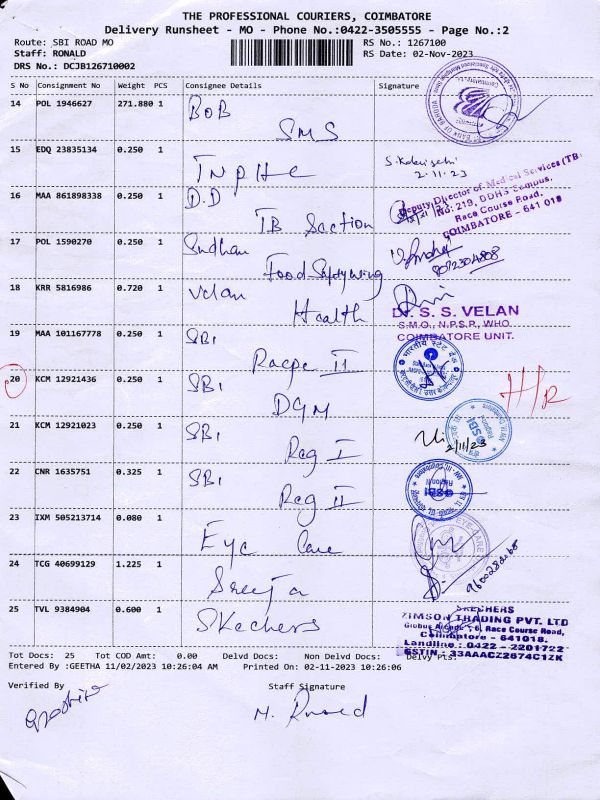 THE PROFESSIONAL COURIERS, COIMBATORE
Delivery Runsheet - MO - Phone No.:0422-3505555 - Page No.:2
Route: SBI ROAD MO RS No.: 1267100
Staff: RONALD RS Date: 02-Nov-2023
DRS No.: DCJB126710002
S No Consignment No Weight PCS Consignee Details Signature
14 POL 1946627 271.880 1 BOB
SMS
15 EDQ 23835134 0.250 1 TNPHC
2.11.23
16 MAA 861898338 0.250 1 D.D
TB Section
Deputy Director of Medical Services (TB)
No: 219, DDHS Campus,
Race Course Road,
COIMBATORE - 641 018
17 POL 1590270 0.250 1 Sudhan
Food Safety wing
18 KRR 5816986 0.720 1 Velan
Health
Dr. S. S. VELAN
S.M.O., N.P.S.P., WHO
COIMBATORE UNIT.
19 MAA 101167778 0.250 1 SBI
Racpc II
20 KCM 12921436 0.250 1 SBI
DGM
H/R
21 KCM 12921023 0.250 1 SBI
Reg I
2/11/23
SBI
22 CNR 1635751 0.325 1 SBI
Reg II
SBI
23 IXM 505213714 0.080 1 Eye Care
24 TCG 40699129 1.225 1 Sreeja
25 TVL 9384904 0.600 1 Skechers
SKECHERS
ZIMSON TRADING PVT. LTD
Race Course Road,
Coimbatore - 641018.
Landline : 0422 - 2201722
GSTIN : 33AAACZ2674C1ZK
Tot Docs: 25 Tot COD Amt: 0.00 Delvd Docs: Non Delvd Docs: Delvy Pts:
Entered By :GEETHA 11/02/2023 10:26:04 AM Printed On: 02-11-2023 10:26:06
Verified By Staff Signature